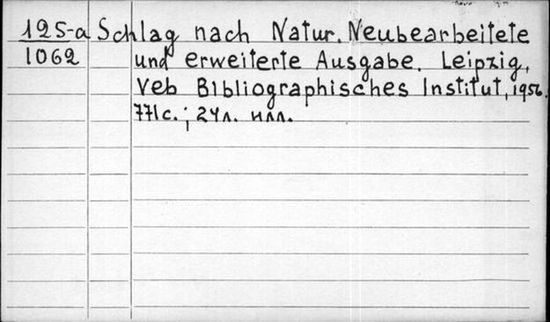 125-a Schlag nach Natur. Neubearbeitete
1062 und erweiterte Ausgabe. Leipzig,
Veb Bibliographisches Institut, 1956.
771с.; 24л. илл.